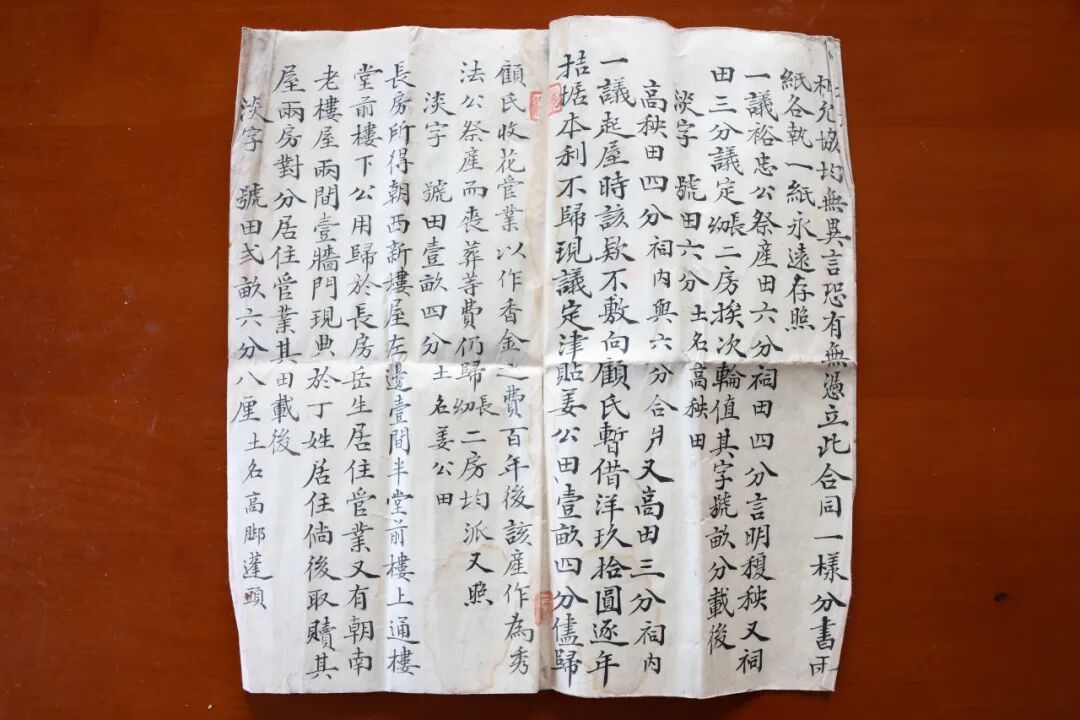 相允協均無異言恐有無憑立此合同一樣分書兩
紙各執一紙永遠存照
一議裕忠公祭產田六分祠田四分言明稷秧又祠
田三分議定長幼二房挨次輪值其字號畝分載後
淡字 號田六分土名高秧田
高秧田四分祠內與六分合爿又高田三分祠內
一議起屋時該欵不敷向顧氏暫借洋玖拾圓逐年
拮据本利不歸現議定津貼姜公田壹畝四分儘歸
顧氏收花管業以作香金之費百年後該產作為秀
法公祭產而喪葬等費仍歸長幼二房均派又照
淡字 號田壹畝四分土名姜公田
長房所得朝西新樓屋左邊壹間半堂前樓上通樓
堂前樓下公用歸於長房岳生居住管業又有朝南
老樓屋兩間壹牆門現典於丁姓居住倘後取贖其
屋兩房對分居住管業其田載後
淡字 號田弍畝六分八厘土名高脚蓬頭